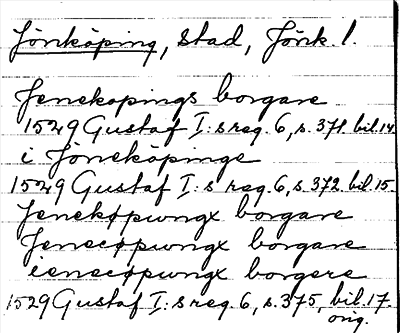 Jönköping, stad, Jönk. l.
Jenekopings borgare
1529 Gustaf I:s reg. 6, s. 371. bil. 14.
i Jöneköpinge
1529 Gustaf I:s reg. 6, s. 372. bil. 15.
Jenekøpungx borgare
Jenecøpungx borgare
ienecøpungx borgere
1529 Gustaf I:s reg. 6, s. 375, bil. 17.
orig.